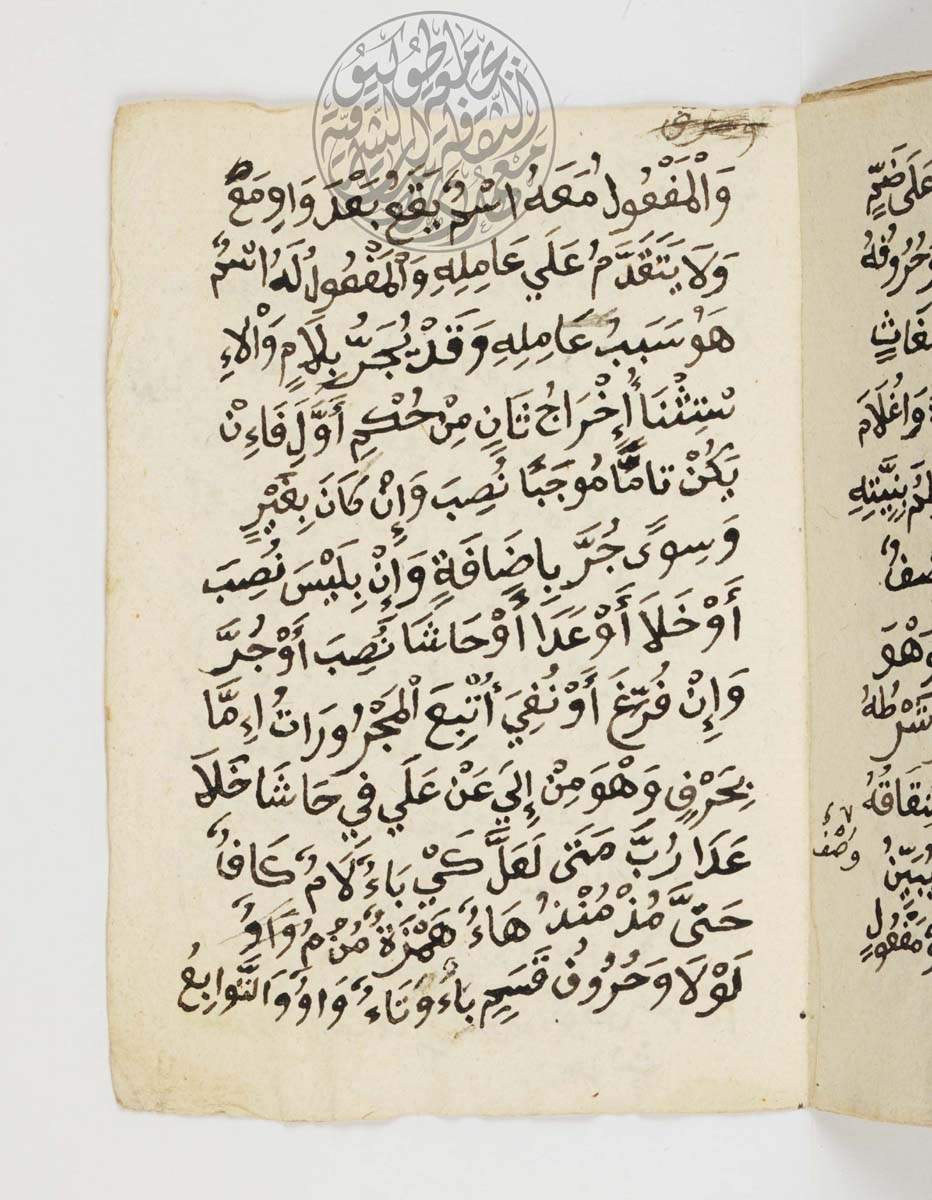 وَالْمَفْعُولُ مَعَهُ اسْمٌ يَقَعُ بَعْدَ وَاوِ مَعَ
وَلَا يَتَقَدَّمُ عَلَي عَامِلِهِ وَالْمَفْعُولُ لَهُ اسْمٌ
هُوَ سَبَبُ عَامِلِهِ وَقَدْ يُجَرُّ بِلَامٍ وَالْاِ
سْتِثْنَأُ إِخْرَاجُ ثَانٍ مِنْ حُكْمِ أَوَّلَ فَاِنْ
يَكُنْ تَامًّا مُوجَبًا نُصِبَ وَإِنْ كَانَ بِغَيْرٍ
وَسِوًى جُرَّ بِاِضَافَةٍ وَإِنْ بِلَيْسَ نُصِبَ
أَوْ خَلَا أَوْ عَدَا أَوْ حَاشَا نُصِبَ أَوْ جُرَّ
وَإِنْ فُرِّغَ أَوْ نُفِيَ أُتْبِعَ الْمَجْرُورَاتُ اِمَّا
بِحَرْفٍ وَهْوَ مِنْ إِلَيَ عَنْ عَلَي فِي حَاشَا خَلَا
عَدَا رُبَّ مَتَى لَعَلَّ كَيْ بَاءٌ لَامٌ كَافٌ
حَتَّى مُذْ مُنْذُ هَاءٌ هَمْزَةٌ مُنْ مُ وَاوٌ
لَوْلَا وَحُرُوفُ قَسَمٍ بَاءٌ وَتَاءٌ وَاوٌ وَالتَّوَابِعُ
عَلَى ضَمٍّ
وَحُرُوفُهُ
وَاغُلَامَ
وَهْوَ
شَرْطُهُ
يُبَيِّنُ
وَصْفٌ